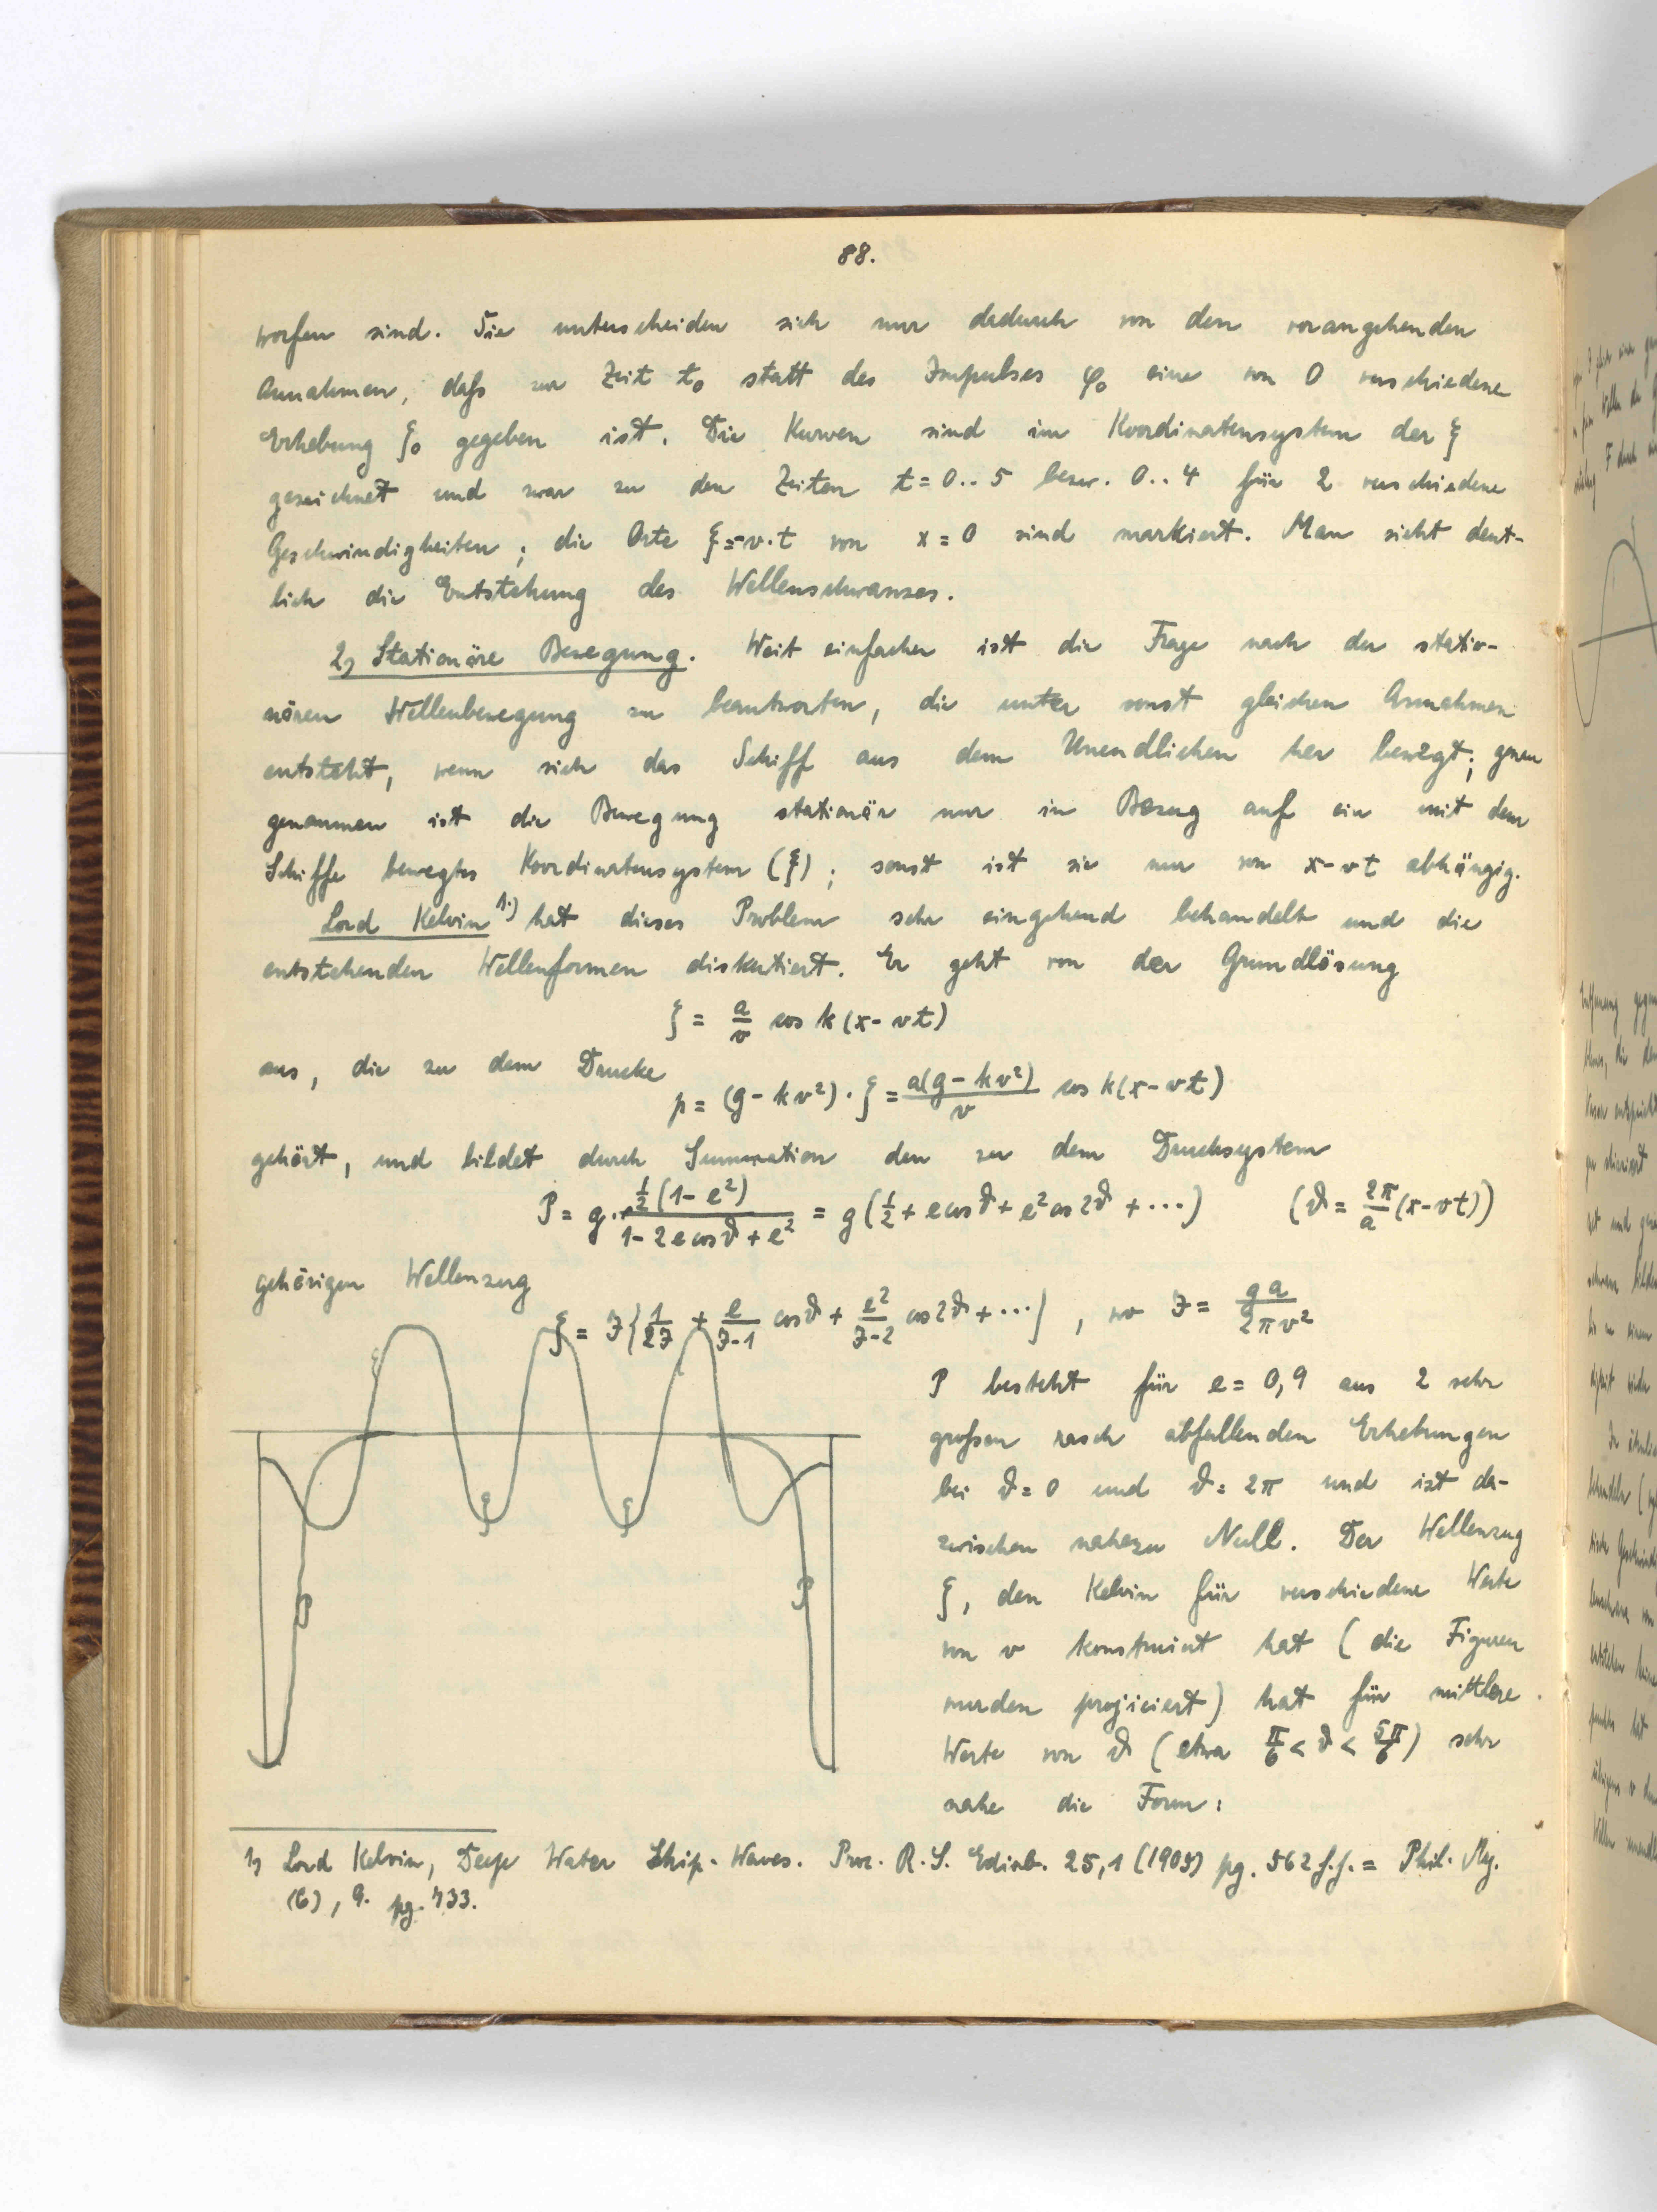 88.
worfen sind. Sie unterscheiden sich nur dadurch von den vorangehenden
Annahmen, daſs zur Zeit t₀ statt des Impulses φ₀ eine von 0 verschiedene
Erhebung ζ₀ gegeben ist. Die Kurven sind im Koordinatensystem der ξ
gezeichnet und zwar zu den Zeiten t = 0..5 bezw. 0..4 für 2 verschiedene
Geschwindigkeiten; die Orte ξ = -v·t von x = 0 sind markiert. Man sieht deut-
lich die Entstehung des Wellenschwanzes.
2) Stationäre Bewegung. Weit einfacher ist die Frage nach der statio-
nären Wellenbewegung zu beantworten, die unter sonst gleichen Annahmen
entsteht, wenn sich das Schiff aus dem Unendlichen her bewegt; genau
genommen ist die Bewegung stationär nur in Bezug auf ein mit dem
Schiffe bewegtes Koordinatensystem (ξ); sonst ist sie nur von x-vt abhängig.
Lord Kelvin 1.) hat dieses Problem sehr eingehend behandelt und die
entstehenden Wellenformen diskutiert. Er geht von der Grundlösung
ζ = a/v cos k(x-vt)
aus, die zu dem Drucke
p = (g - kv²)·ζ = a(g - kv²)/v cos k(x-vt)
gehört, und bildet durch Summation den zu dem Drucksystem
P = g· ½(1-e²)/(1-2e cosϑ + e²) = g(½ + e cosϑ + e² cos 2ϑ + ···) (ϑ = 2π/a (x-vt))
gehörigen Wellenzug
ζ = J{1/2J + e/J-1 cosϑ + e²/J-2 cos 2ϑ + ···}, wo J = ga/2πv²
P besteht für e = 0,9 aus 2 sehr
groſsen rasch abfallenden Erhebungen
bei ϑ = 0 und ϑ = 2π und ist da-
zwischen nahezu Null. Der Wellenzug
ζ, den Kelvin für verschiedene Werte
von v konstruiert hat (die Figuren
wurden projiciert) hat für mittlere
Werte von ϑ (etwa π/6 < ϑ < 5π/6) sehr
nahe die Form:
ζ
ζ
ζ
P
P
1) Lord Kelvin, Deep Water Ship-Waves. Proc. R.S. Edinb. 25,1 (1905) pg. 562 f.f. = Phil. Mag.
(6), 9. pg. 733.